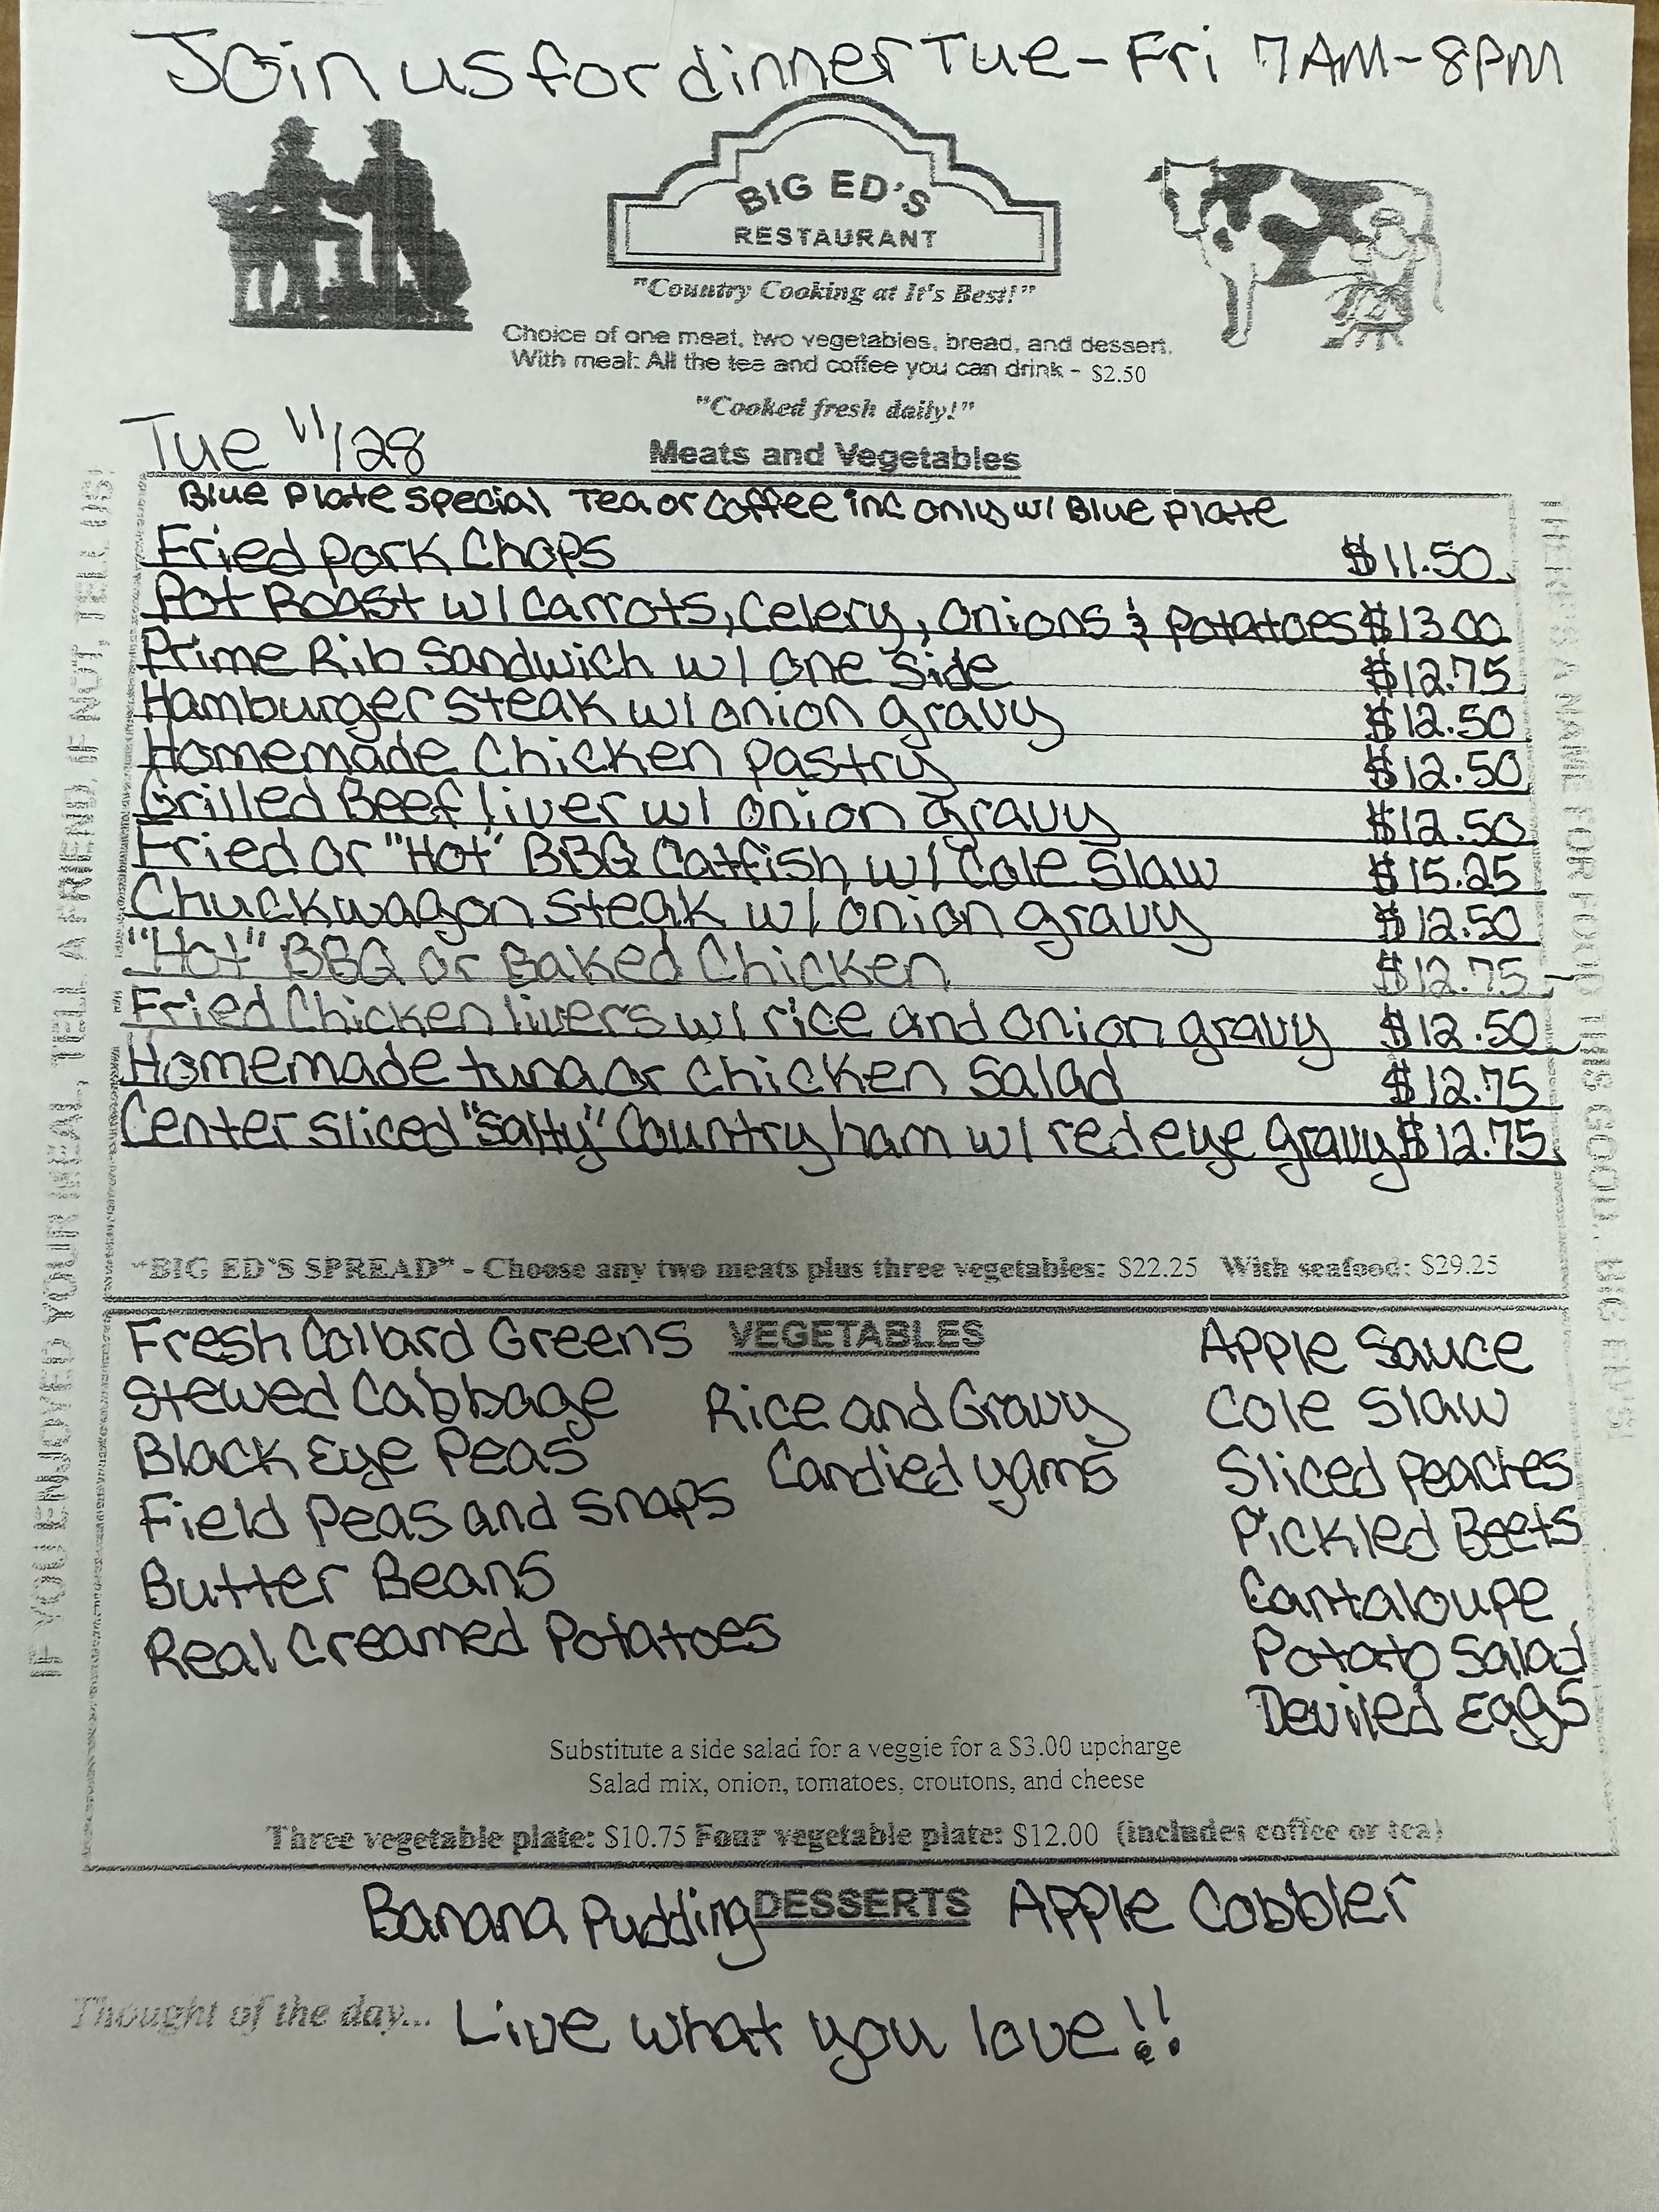 Join us for dinner Tue - Fri 7AM - 8PM
BIG ED'S
RESTAURANT
"Country Cooking at It's Best!"
Choice of one meat, two vegetables, bread, and dessert.
With meal: All the tea and coffee you can drink - $2.50
"Cooked fresh daily!"
Tue 11/28
Meats and Vegetables
Blue Plate Special Tea or Coffee inc only w/ Blue Plate
Fried Pork Chops $11.50
Pot Roast w/ Carrots, Celery, Onions & Potatoes $13.00
Prime Rib Sandwich w/ One Side $12.75
Hamburger Steak w/ onion gravy $12.50
Homemade Chicken Pastry $12.50
Grilled Beef liver w/ onion gravy $12.50
Fried or "Hot" BBQ Catfish w/ Cole Slaw $15.25
Chuckwagon Steak w/ onion gravy $12.50
"Hot" BBQ or Baked Chicken $12.75
Fried Chicken livers w/ rice and onion gravy $12.50
Homemade tuna or chicken Salad $12.75
Center sliced "Salty" Country ham w/ red eye gravy $12.75
"BIG ED'S SPREAD" - Choose any two meats plus three vegetables: $22.25 With seafood: $29.25
VEGETABLES
Fresh Collard Greens
Stewed Cabbage
Black Eye Peas
Field Peas and Snaps
Butter Beans
Real Creamed Potatoes
Rice and Gravy
Candied yams
Apple Sauce
Cole Slaw
Sliced Peaches
Pickled Beets
Cantaloupe
Potato Salad
Deviled Eggs
Substitute a side salad for a veggie for a $3.00 upcharge
Salad mix, onion, tomatoes, croutons, and cheese
Three vegetable plate: $10.75 Four vegetable plate: $12.00 (includes coffee or tea)
Banana Pudding DESSERTS Apple Cobbler
Thought of the day... Live what you love!!
IF YOU ENJOYED YOUR MEAL, TELL A FRIEND, IF NOT, TELL US!
THERE'S A NAME FOR FOOD THIS GOOD... BIG ED'S!